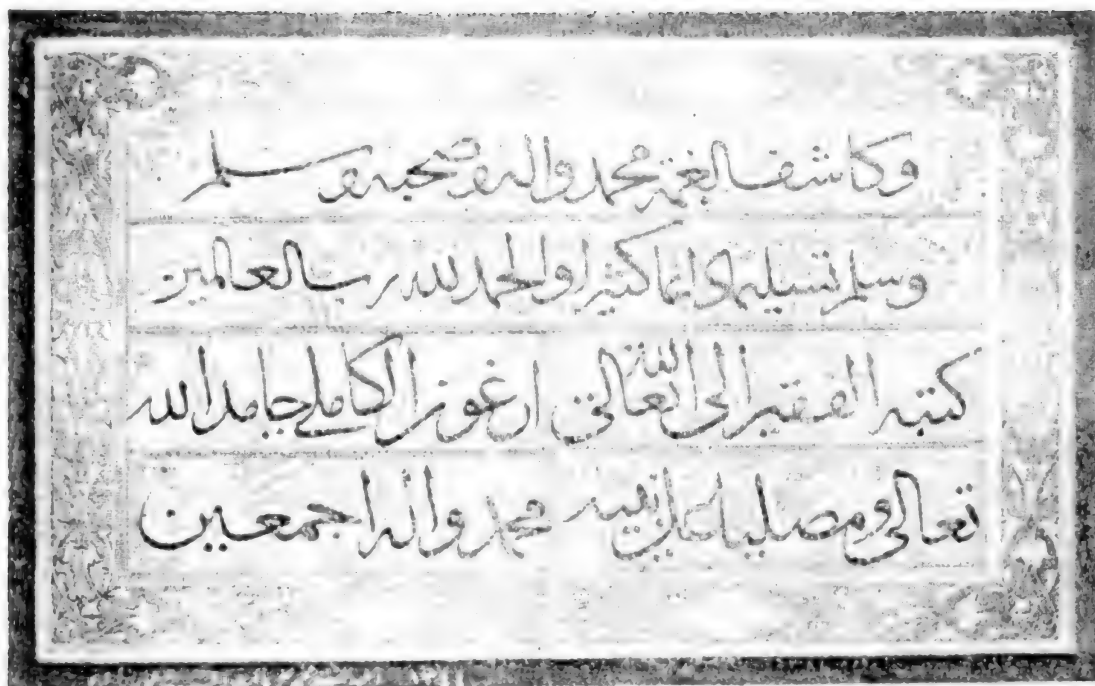 وكاشف الغمة محمد واله وصحبه وسلم
وسلم تسليما دائما كثيرا والحمد لله رب العالمين
كتبه الفقير الى الله تعالى ارغون الكاملي حامدا لله
تعالى ومصليا على نبيه محمد واله اجمعين